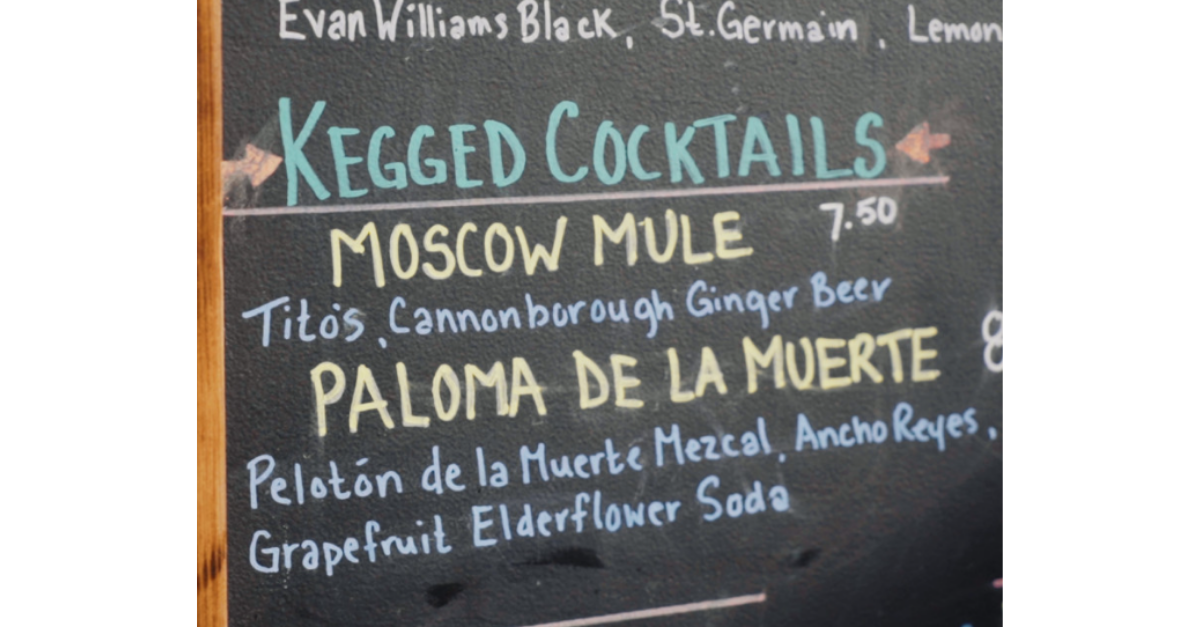 Evan Williams Black, St. Germain, Lemon
KEGGED COCKTAILS
MOSCOW MULE 7.50
Tito's, Cannonborough Ginger Beer
PALOMA DE LA MUERTE 8
Pelotón de la Muerte Mezcal, Ancho Reyes,
Grapefruit Elderflower Soda